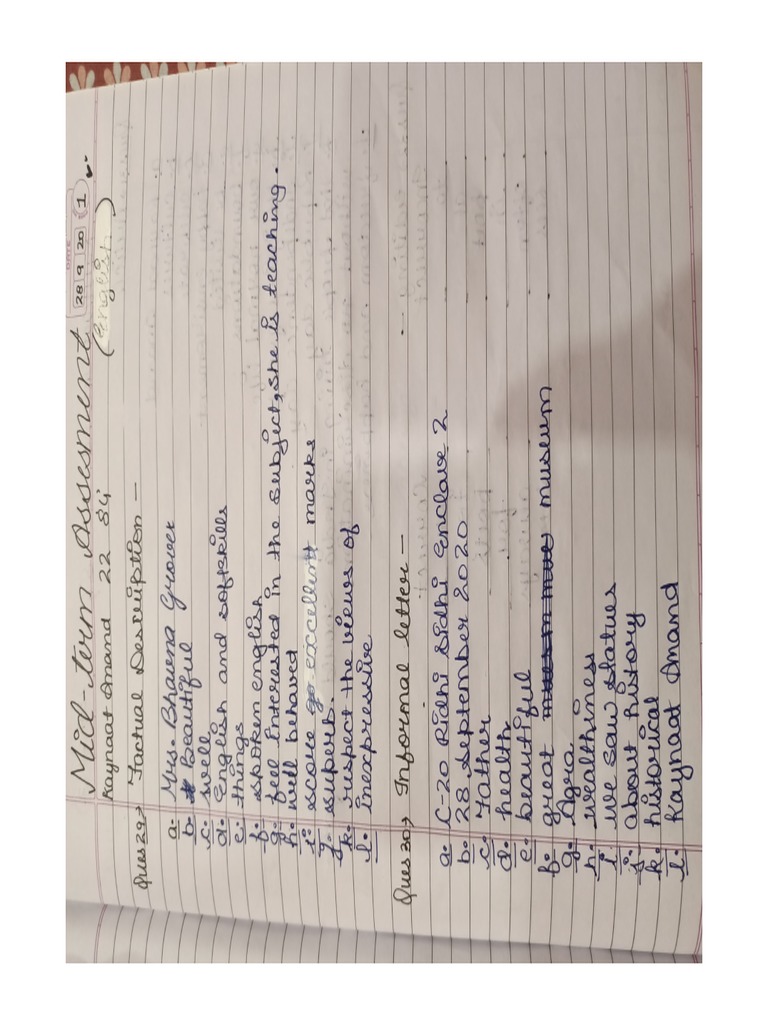 DATE
28 9 20
1
Mid-term Assesment
Kaynaat Anand 22 84'
(English)
Ques 29→ Factual Description -
a. Mrs. Bhavna Grover
b. beautiful
c. well
d. English and softskills
e. things
f. spoken english
g. feel interested in the subject, she is teaching.
h. well behaved
i. score excellent marks
j. superb.
k. respect the views of
l. inexpressive
Ques 30→ Informal letter -
a. C-20 Ridhi Sidhi Enclave 2
b. 28 September 2020
c. Father
d. health
e. beautiful
f. great museum
g. Agra
h. wealthiness
i. we saw statues
j. about history
k. historical
l. Kaynaat Anand